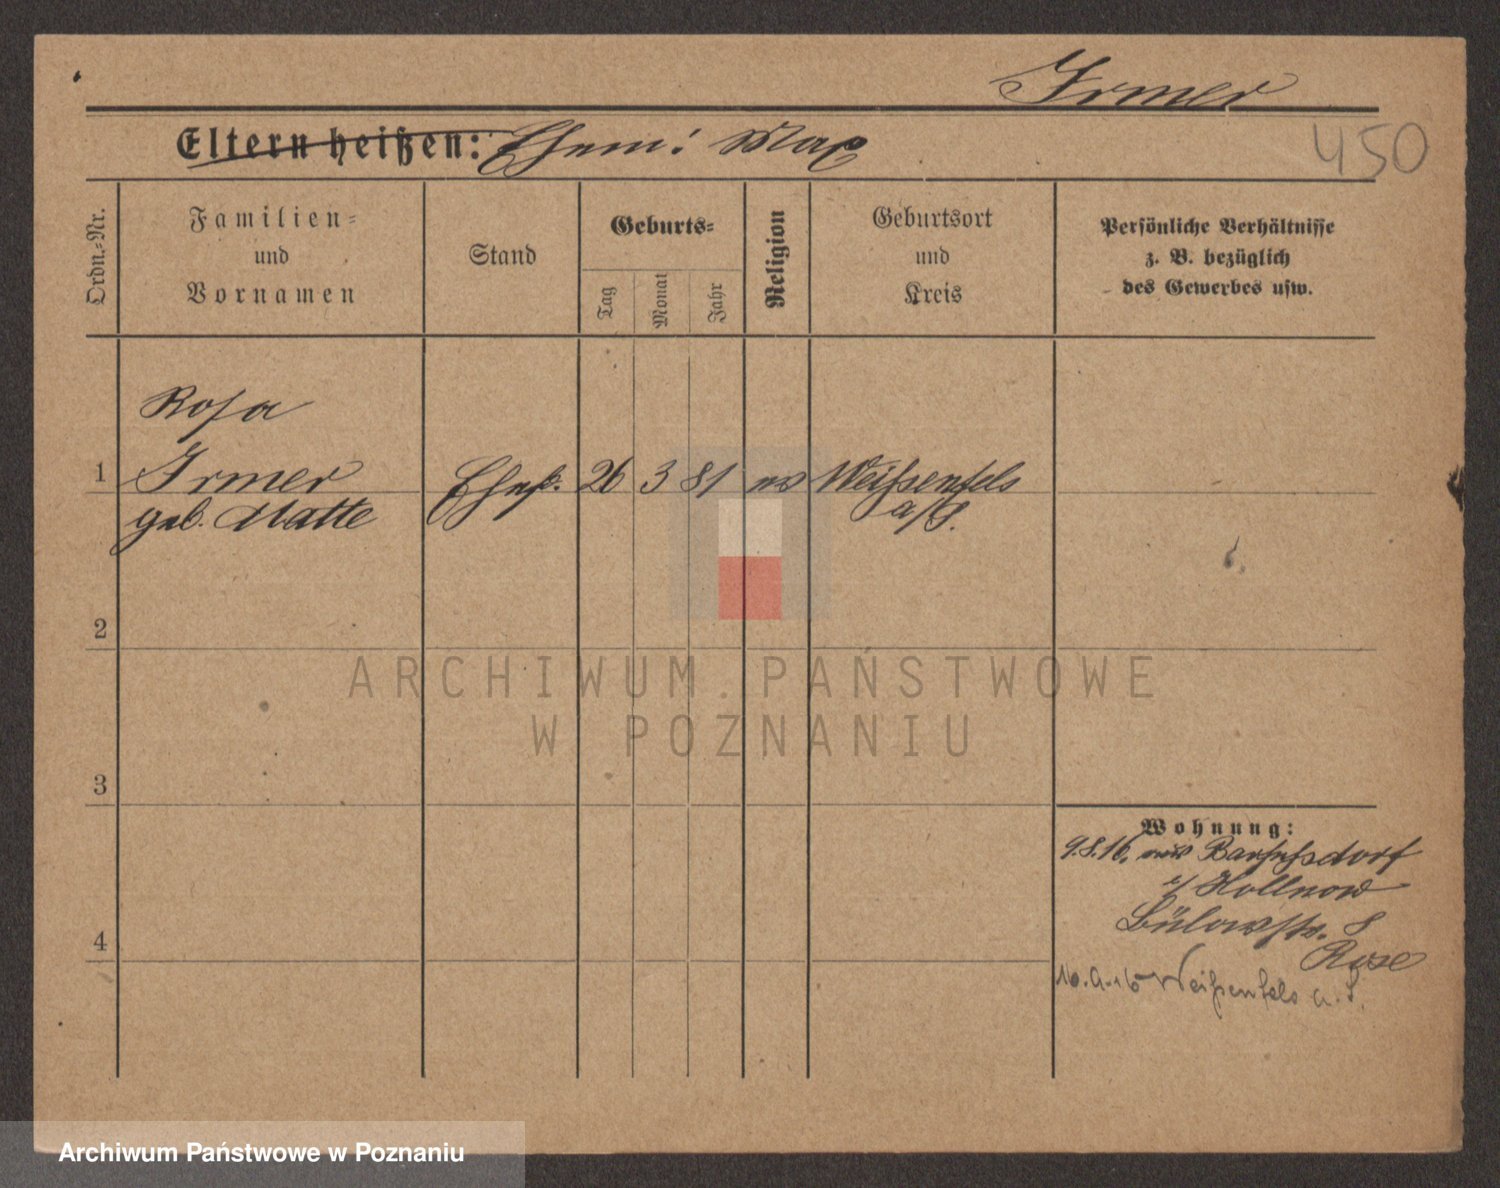 Irmer
450
Eltern heißen: Ehem: Max
Ordn.-Nr.
Familien-
und
Vornamen
Stand
Geburts-
Tag
Monat
Jahr
Religion
Geburtsort
und
Kreis
Persönliche Verhältnisse
z. B. bezüglich
des Gewerbes usw.
Rosa
1 Irmer Ehefr. 26 3 81 ev Weißenfels
geb. Matte a/S.
2
3
4
Wohnung:
9.8.16, aus
Hollnow
Bülowstr. 8
Rose
16.9.16 Weißenfels a. S.
ARCHIWUM PAŃSTWOWE
W POZNANIU
Archiwum Państwowe w Poznaniu